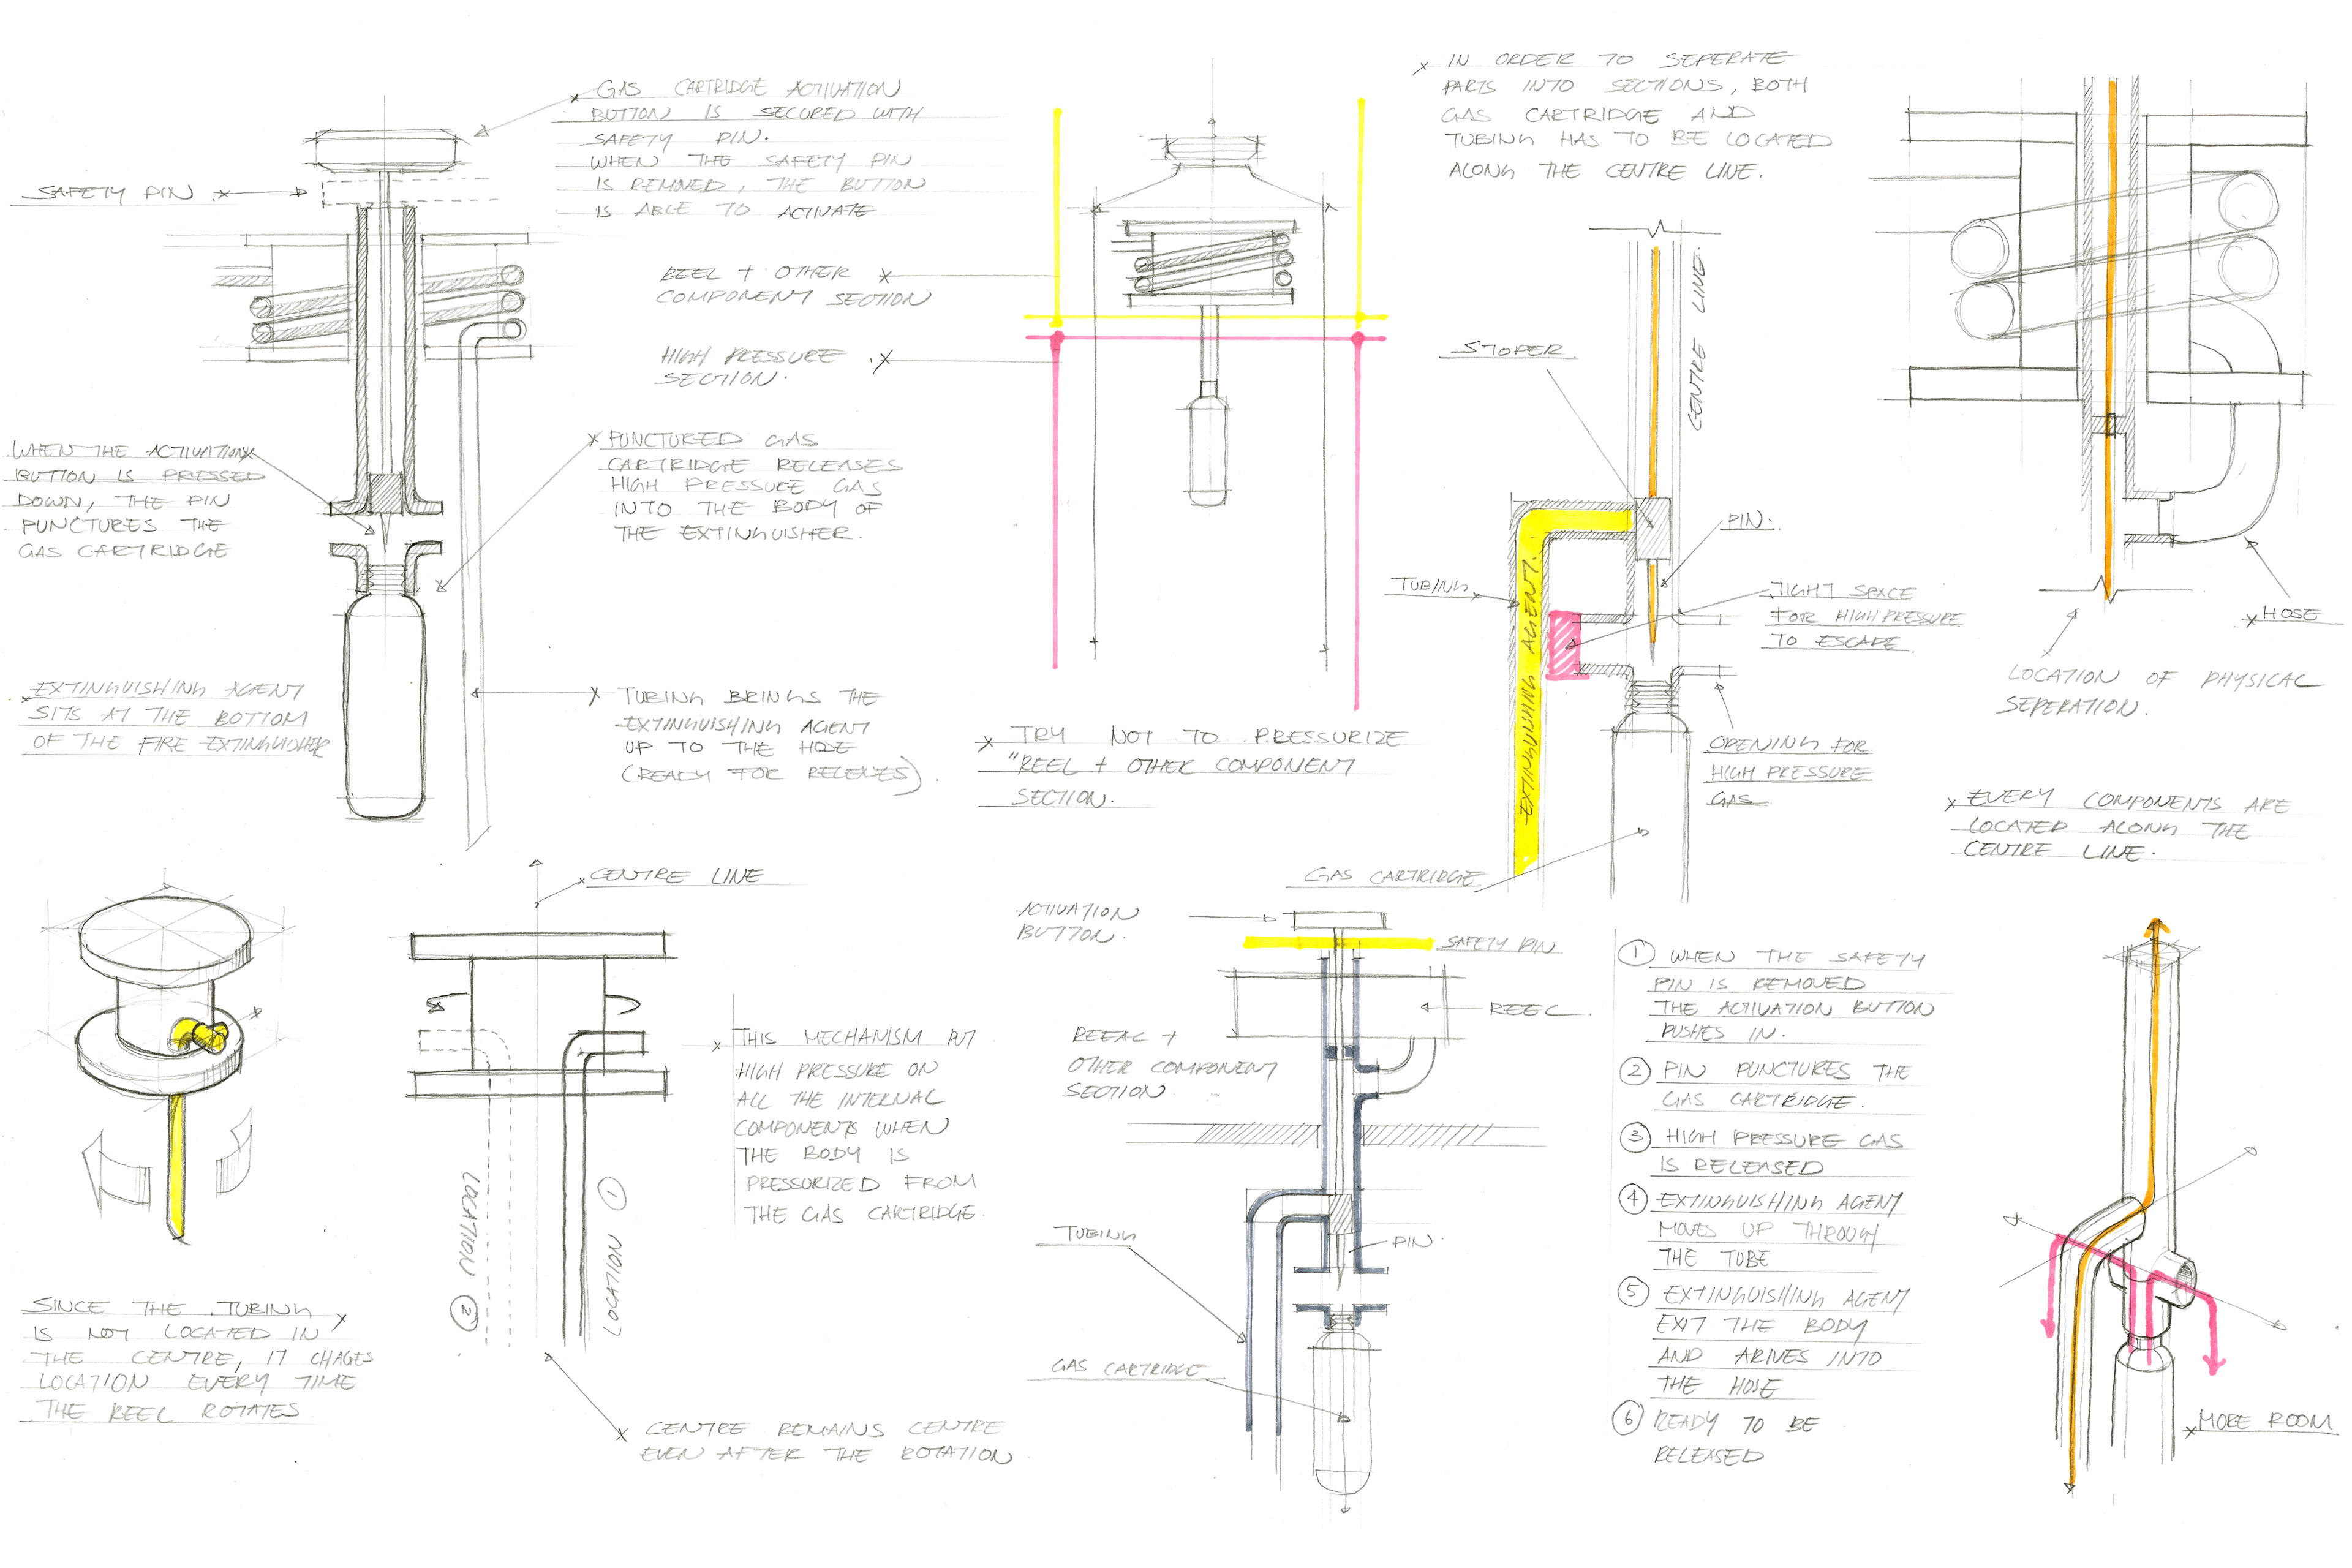 GAS CARTRIDGE ACTIVATION
BUTTON IS SECURED WITH
SAFETY PIN.
WHEN THE SAFETY PIN
IS REMOVED, THE BUTTON
IS ABLE TO ACTIVATE
SAFETY PIN
WHEN THE ACTIVATION
BUTTON IS PRESSED
DOWN, THE PIN
PUNCTURES THE
GAS CARTRIDGE
PUNCTURED GAS
CARTRIDGE RELEASES
HIGH PRESSURE GAS
INTO THE BODY OF
THE EXTINGUISHER.
EXTINGUISHING AGENT
SITS AT THE BOTTOM
OF THE FIRE EXTINGUISHER
TUBING BRINGS THE
EXTINGUISHING AGENT
UP TO THE HOSE
(READY FOR RELEASES).
REEL + OTHER
COMPONENT SECTION
HIGH PRESSURE
SECTION.
TRY NOT TO PRESSURIZE
"REEL + OTHER COMPONENT
SECTION.
IN ORDER TO SEPERATE
PARTS INTO SECTIONS, BOTH
GAS CARTRIDGE AND
TUBING HAS TO BE LOCATED
ALONG THE CENTRE LINE.
CENTRE LINE.
STOPER
PIN.
TUBING
EXTINGUISHING AGENT.
TIGHT SPACE
FOR HIGH PRESSURE
TO ESCAPE.
OPENING FOR
HIGH PRESSURE
GAS
GAS CARTRIDGE
HOSE
LOCATION OF PHYSICAL
SEPERATION.
EVERY COMPONENTS ARE
LOCATED ALONG THE
CENTRE LINE.
SINCE THE TUBING
IS NOT LOCATED IN
THE CENTRE, IT CHAGES
LOCATION EVERY TIME
THE REEL ROTATES
CENTRE LINE
LOCATION 2
LOCATION 1
THIS MECHANISM PUT
HIGH PRESSURE ON
ALL THE INTERNAL
COMPONENTS WHEN
THE BODY IS
PRESSURIZED FROM
THE GAS CARTRIDGE.
CENTRE REMAINS CENTRE
EVEN AFTER THE ROTATION.
ACTIVATION
BUTTON.
SAFETY PIN
REEL
REEAL +
OTHER COMPONENT
SECTION
TUBING
PIN.
GAS CARTRIDGE
1 WHEN THE SAFETY
PIN IS REMOVED
THE ACTIVATION BUTTON
PUSHES IN.
2 PIN PUNCTURES THE
GAS CARTRIDGE.
3 HIGH PRESSURE GAS
IS RELEASED
4 EXTINGUISHING AGENT
MOVES UP THROUGH
THE TUBE
5 EXTINGUISHING AGENT
EXIT THE BODY
AND ARIVES INTO
THE HOSE
6 READY TO BE
RELEASED
MORE ROOM